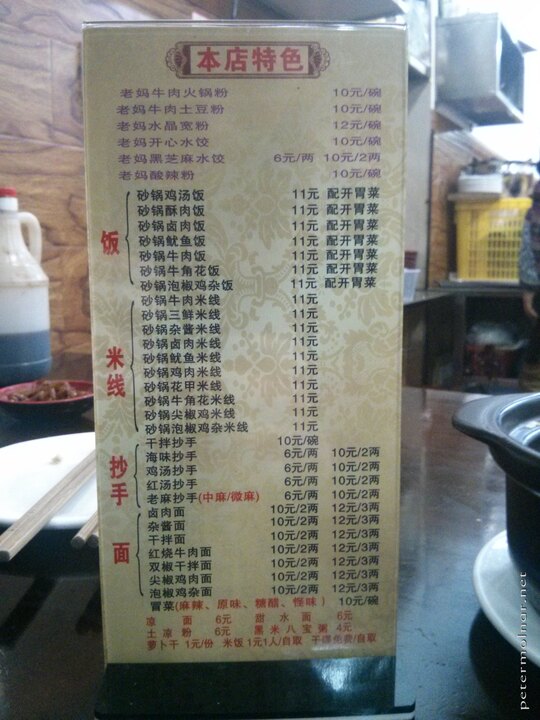 本店特色
老妈牛肉火锅粉 10元/碗
老妈牛肉土豆粉 10元/碗
老妈水晶宽粉 12元/碗
老妈开心水饺 10元/碗
老妈黑芝麻水饺 6元/两 10元/2两
老妈酸辣粉 10元/碗
饭
砂锅鸡汤饭 11元 配开胃菜
砂锅酥肉饭 11元 配开胃菜
砂锅卤肉饭 11元 配开胃菜
砂锅鱿鱼饭 11元 配开胃菜
砂锅牛肉饭 11元 配开胃菜
砂锅牛角花饭 11元 配开胃菜
砂锅泡椒鸡杂饭 11元 配开胃菜
米线
砂锅牛肉米线 11元
砂锅三鲜米线 11元
砂锅杂酱米线 11元
砂锅卤肉米线 11元
砂锅鱿鱼米线 11元
砂锅鸡肉米线 11元
砂锅花甲米线 11元
砂锅牛角花米线 11元
砂锅尖椒鸡米线 11元
砂锅泡椒鸡杂米线 11元
抄手
干拌抄手 10元/碗
海味抄手 6元/两 10元/2两
鸡汤抄手 6元/两 10元/2两
红汤抄手 6元/两 10元/2两
老麻抄手(中麻/微麻) 6元/两 10元/2两
面
卤肉面 10元/2两 12元/3两
杂酱面 10元/2两 12元/3两
干拌面 10元/2两 12元/3两
红烧牛肉面 10元/2两 12元/3两
双椒干拌面 10元/2两 12元/3两
尖椒鸡肉面 10元/2两 12元/3两
泡椒鸡杂面 10元/2两 12元/3两
冒菜(麻辣、原味、糖醋、怪味) 10元/碗
凉面 6元 甜水面 6元
土凉粉 6元 黑米八宝粥 4元
萝卜干 1元/份 米饭 1元1人/自取 干碟免费/自取
petermolnar.net